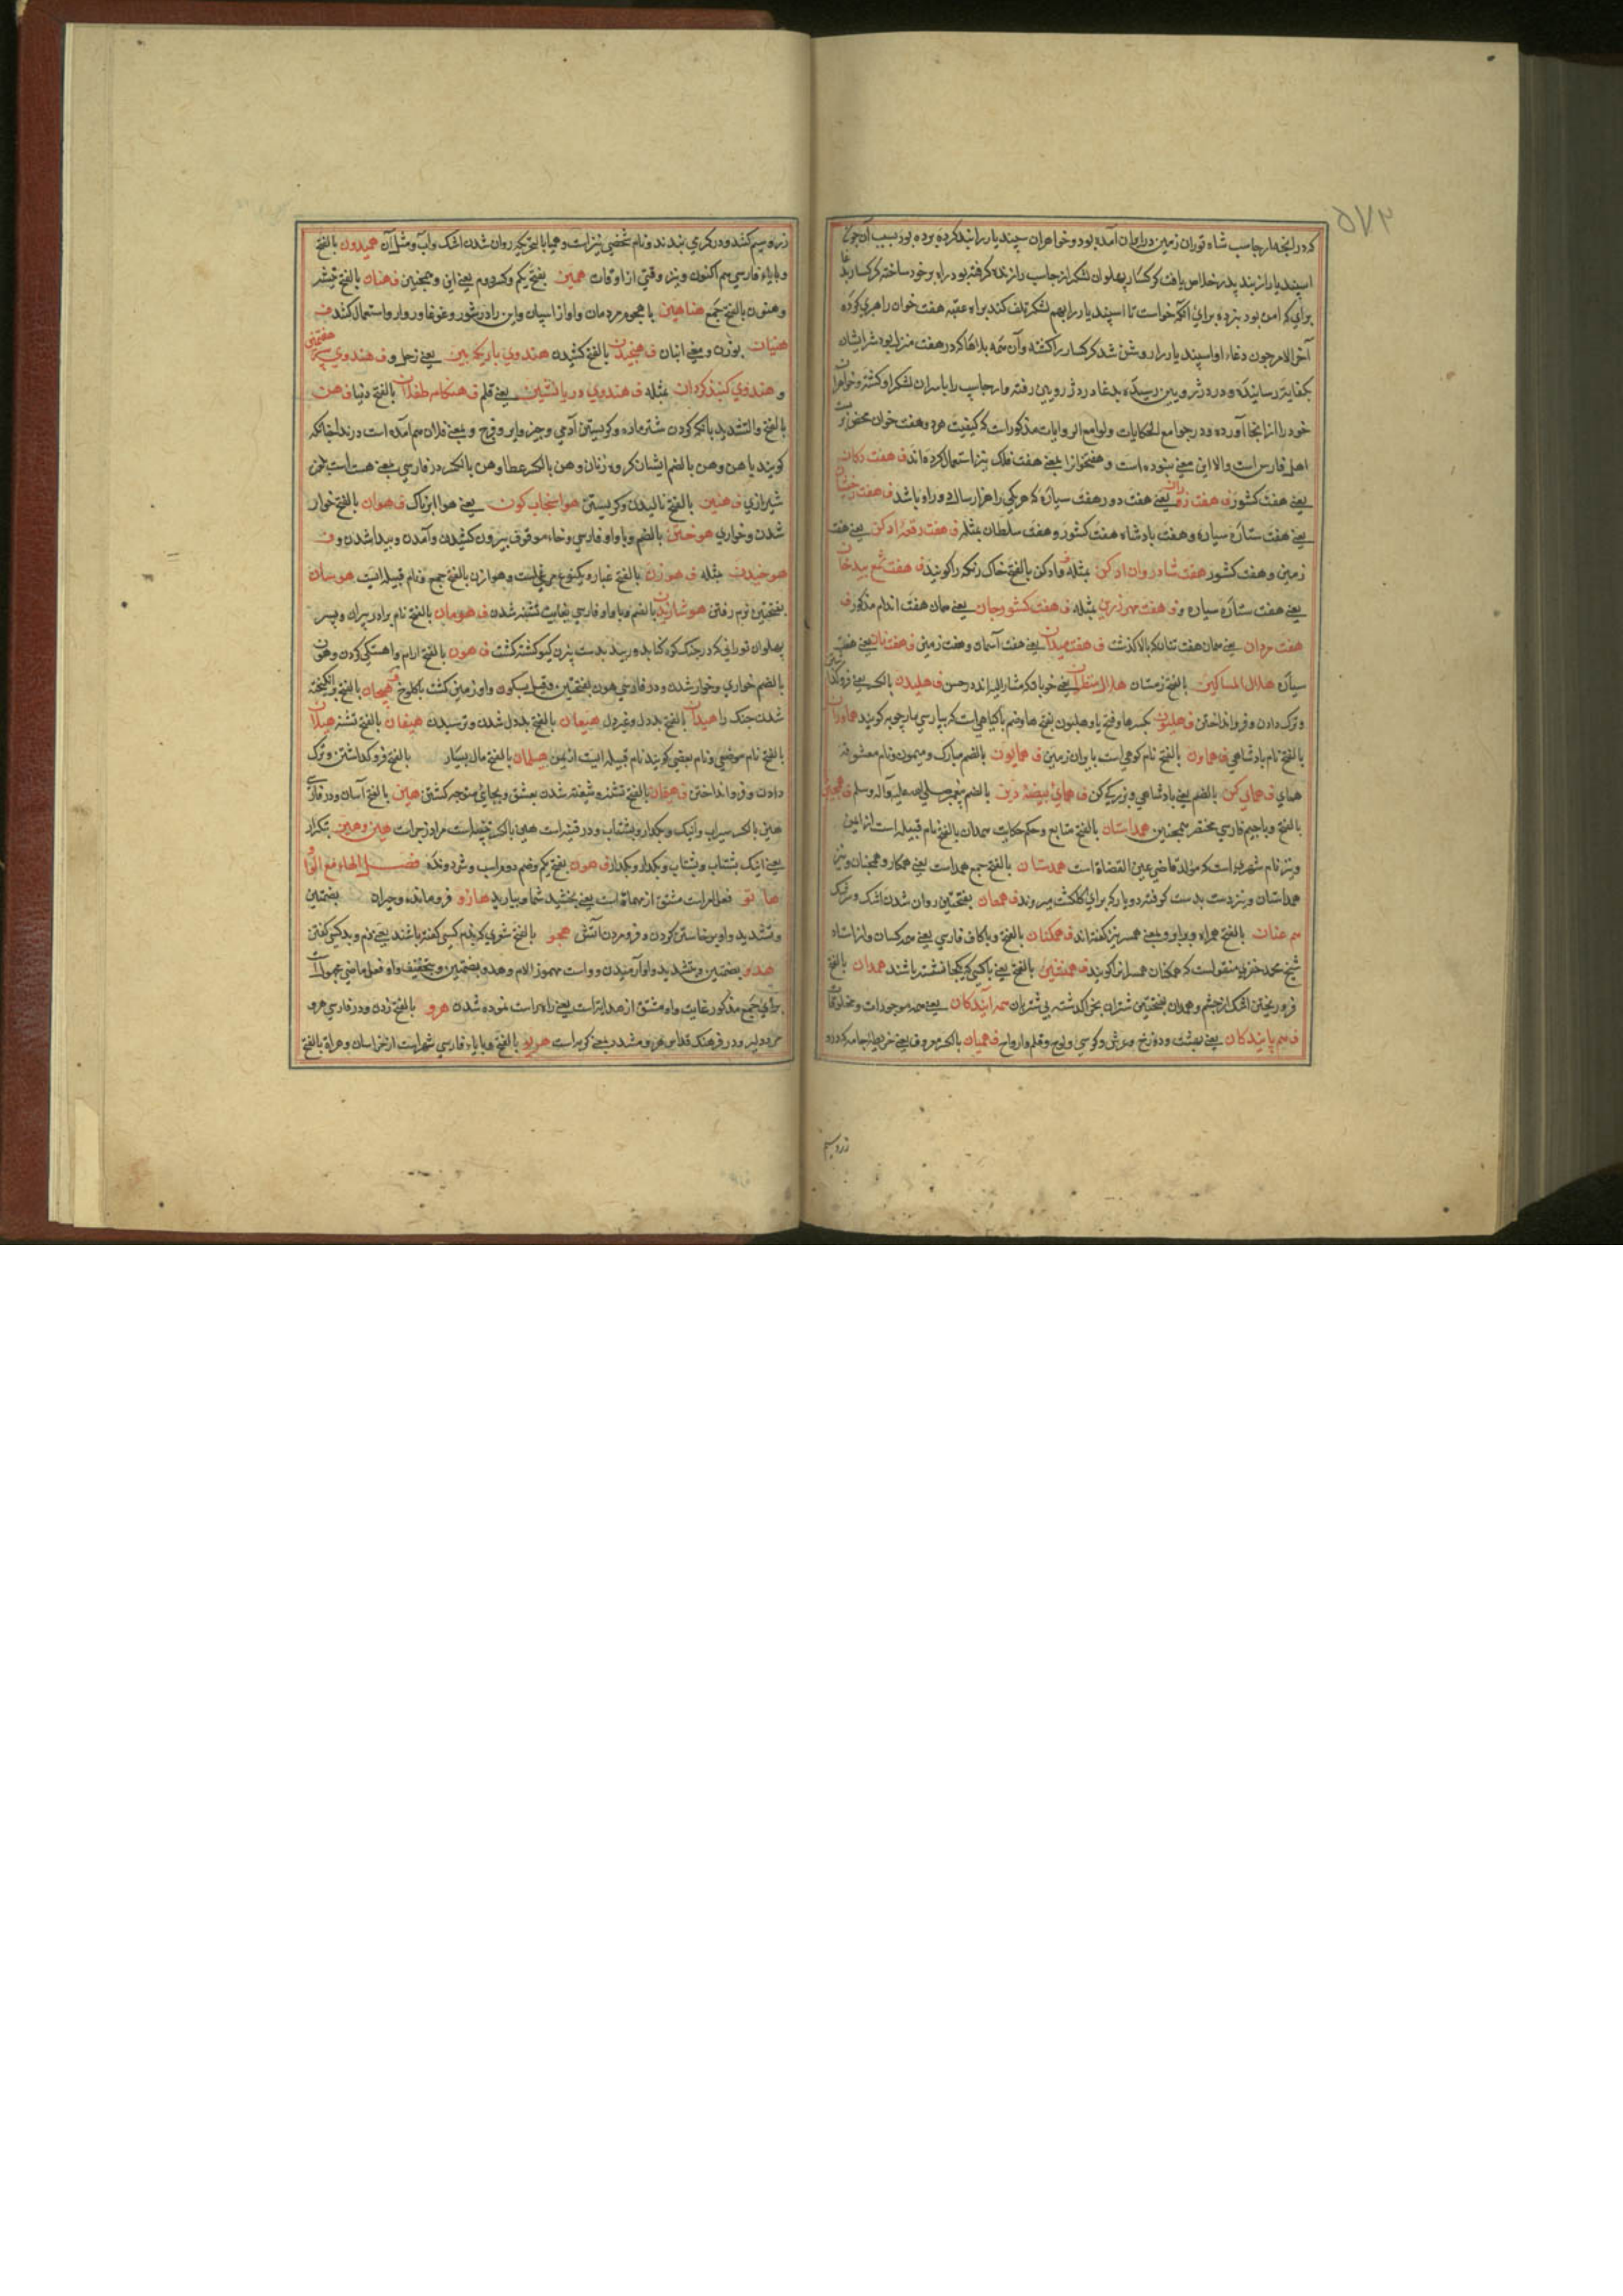 که در آنچه ارجاسب شاه توران زمین در ایران آمده بود و خواهران سپندیار را بند کرده برده بود بسبب آن چون
اسپندیار از بند پدر خلاص یافت کرکسار پهلوان لشکر ارجاسب را زنده گرفته بود راه بر خود ساخته کرکسار
برای که امن بود نبرده برای آنکه خواست تا اسپندیار را بهم لشکر تلف کند براه عقبه هفت خوان راهبری کرده
آخر الامر چون دغاء او اسپندیار را روشن شد کرکسار را کشته و آن همه بلاها که در هفت منزل بود
بکفایت رسانیده و در دز رویین رسیده بدغا در دژ رویین رفته و ارجاسپ را با سران لشکر او کشته و خواهران
خود را از آنجا آورده و در جوامع الحکایات و لوامع الروایات مذکور است که کیفیت هر دو هفت خوان
اهل فارس است والا این معنی نبوده است و هفتخوان را بمعنی هفت فلک نیز استعمال کرده اند ف هفت دکان
یعنی هفت کشور ف هفت یعنی هفت دور هفت سیاره که هر یکی را هزار سال دور او باشد ف هفت
یعنی هفت ستاره سیاره و هفت پادشاه هفت کشور و هفت سلطان بمثله ف هفت رقعه ادکن یعنی هفت
زمین و هفت کشور هفت شادروان ادکن بمثله و ادکن بالفتح خاک رنگ را گویند ف هفت شمع
یعنی هفت ستاره سیاره و ف هفت بمثله ف هفت کشور جان یعنی همان هفت اندام مذکور ف
هفت مردان یعنی همان هفت تنان که بالا گذشت ف هفت میدان یعنی هفت آسمان و هفت زمین ف هفت یعنی هفت
سیاره هلال المساکین بالفتح زمستان هلال یعنی خوبان که مشار الیه اند در حسن ف هلیدن بالکسر یعنی فرو
و ترک دادن و فرو انداختن ف هلیون بکسر ها و فتح یا و هلیون بفتح ها و ضم یا گیاهی است که بپارسی مارچوبه گویند هماوران
بالفتح نام پادشاهی ف هماون بالفتح نام کوهی است بایران زمین ف همایون بالضم مبارک و میمون و نام معشوقه
همای ف همای کن بالضم یعنی پادشاهی و بزرگی کن ف همای بیضه دین بالضم پیغمبر صلی الله علیه وآله وسلم ف
بالفتح و با جیم فارسی مختصر همچنین همداستان بالفتح متابع و حکم حکایت همدان بالفتح نام قبیله است از یمن
و نیز نام شهری است که مولد قاضی عین القضاة است همدستان بالفتح جمع همدست یعنی همکار و همچنان و نیز
همداستان و نیز دست بدست گرفته دو یار که برای گلگشت میروند ف همعان بفتحتین روان شدن اشک و سرشک
هم عنان بالفتح همراه و برابر و بمعنی همسر نیز گفته اند ف همگنان بالفتح و با کاف فارسی یعنی همه کسان و از استاد
شیخ محمد منقول است که همگنان همسران را گویند ف همنشین بالفتح یعنی با کسی که یکجا نشسته باشند همدان بالفتح
فرو ریختن اشک از چشم و همدان بفتحتین شتران بچرا گذاشته بی شتربان همه آیندگان یعنی همه موجودات و مخلوقات
ف هم پایندگان یعنی بهشت و دوزخ و عرش و کرسی و لوح و قلم و ارواح ف همیان بالکسر معروف یعنی خریطه جامه که درو
زر و سیم
زر و سیم کنند و در کمر بندند و نام شخصی نیز است و همیا بالفتح روان شدن اشک و آب و مثل آن همیدون بالفتح
و با یاء فارسی هم اکنون و نیز وقتی از اوقات همین بفتح یکم و کسر دوم یعنی این و همچنین ف هنان بالفتح
و هنون بالفتح جمع هناهین با هجوم مردمان و آواز اسپان و این را در شور و غوغا و روارو استعمال کنند ف
هنیان بوزن و معنی انبان ف هنجیدن بالفتح کشیدن هندوی باریک بین یعنی زحل و ف هندوی سپهر هفتمین
و هندوی گنبد گردان بمثله ف هندوی دریانشین یعنی قلم ف هنگامه طفلان بالفتح دنیا ف هن
بالفتح والتشدید بانگ کردن شتر ماده و گریستن آدمی و جز وی و فرج و بمعنی فلان هم آمده است
گویند یا هن و هن بالضم ایشان گروه زنان و هن بالکسر عطا و هن بالکسر در فارسی بمعنی هست است بلغت
شیرازی ف هنین بالفتح نالیدن و گریستن هوا سنجاب گون یعنی هوا ابرناک ف هوان بالفتح خوار
شدن و خواری هوختن بالضم و با واو فارسی و خاء موقوف بیرون کشیدن و آمدن و پیدا شدن و ف
هوخیدن مثله ف هوزن بالفتح غبار و یک نوع مرغی است و هوازن بالفتح جمع و نام قبیله ایست هوسان
بفتحتین نرم رفتن هوشازیدن بالضم و با واو فارسی بغایت تشنه شدن ف هومان بالفتح نام برادر پیران و پسر
پهلوان تورانی که در جنگ کوه کنابد و ریبد بدست بیژن گیو کشته گشت ف هون بالفتح آرام و آهستگی کردن و هون
بالضم خواری و خوار شدن و در فارسی هون بفتحتین و قیل بسکون واو زمین کشت با کلوخ هیجان بالفتح برانگیخته
شدن جنگ را هیدان بالفتح بددل و غیر دل هیعان بالفتح بددل شدن و ترسیدن هیفان بالفتح تشنه هیلان
بالفتح نام موضعی و نام بعضی گویند نام قبیله ایست از یمن هیلمان بالفتح مال بسیار بالفتح فرو گذاشتن و ترک
دادن و فرو انداختن ف هیمان بالفتح تشنه و شیفته شدن بعشق و بجایی متوجه گشتن هین بالفتح آسان و در فارسی
هین بالکسر سیراب و اینک و بگذار و بشتاب و در قنیه است هین بالکسر چیست مراد زجر است هین و هین بتکرار
یعنی اینک بشتاب و بشتاب و بگذار و بگذار ف هیون بفتح یکم و ضم دوم اسب و شتر دونده فصل الهاء مع الواو
هاتو فعل امر است مشتق از مهاتاة است یعنی بخشید شما و بیارید هازو فرومانده و حیران بضمتین
و تشدید واو برخاستن گردن و فرو مردن آتش هجو بالفتح شعری که در ذم کسی گفته باشند یعنی ذم و بد کسی گفتن
هدو بضمتین و تشدید واو آرمیدن و راست مهموز اللام و هدو بضمتین و بتخفیف واو فعل ماضی مجهول است
برای جمع مذکور غایب واو مشتق از هدایة است یعنی راه راست نموده شدن هرو بالفتح زدن و در فارسی هرو
مردو لیر و در فرهنگ قواس هرو مشدد یعنی گربه است هریو بالفتح و با یاء فارسی شهر است از خراسان و هراة بالفتح